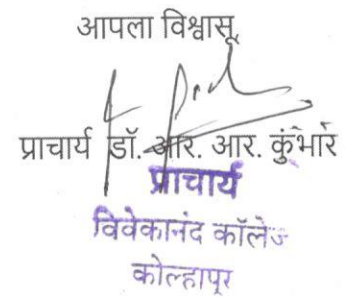 आपला विश्वासू,
प्राचार्य डॉ. आर. आर. कुंभारे
प्राचार्य
विवेकानंद कॉलेज
कोल्हापूर